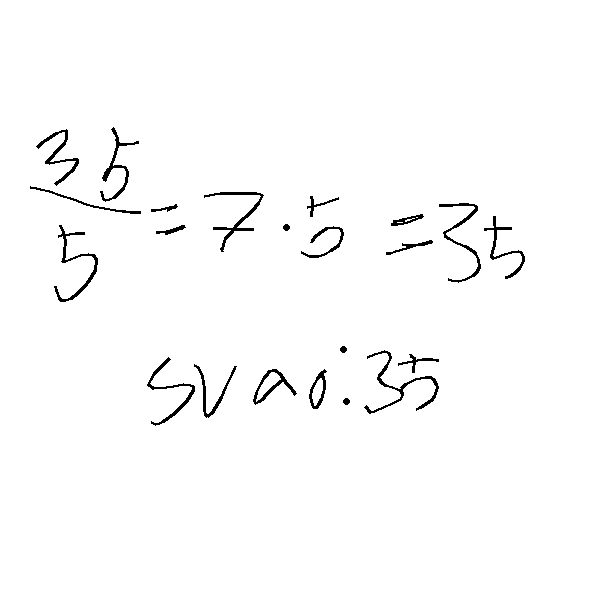 35/5 = 7 · 5 = 35
svar: 35